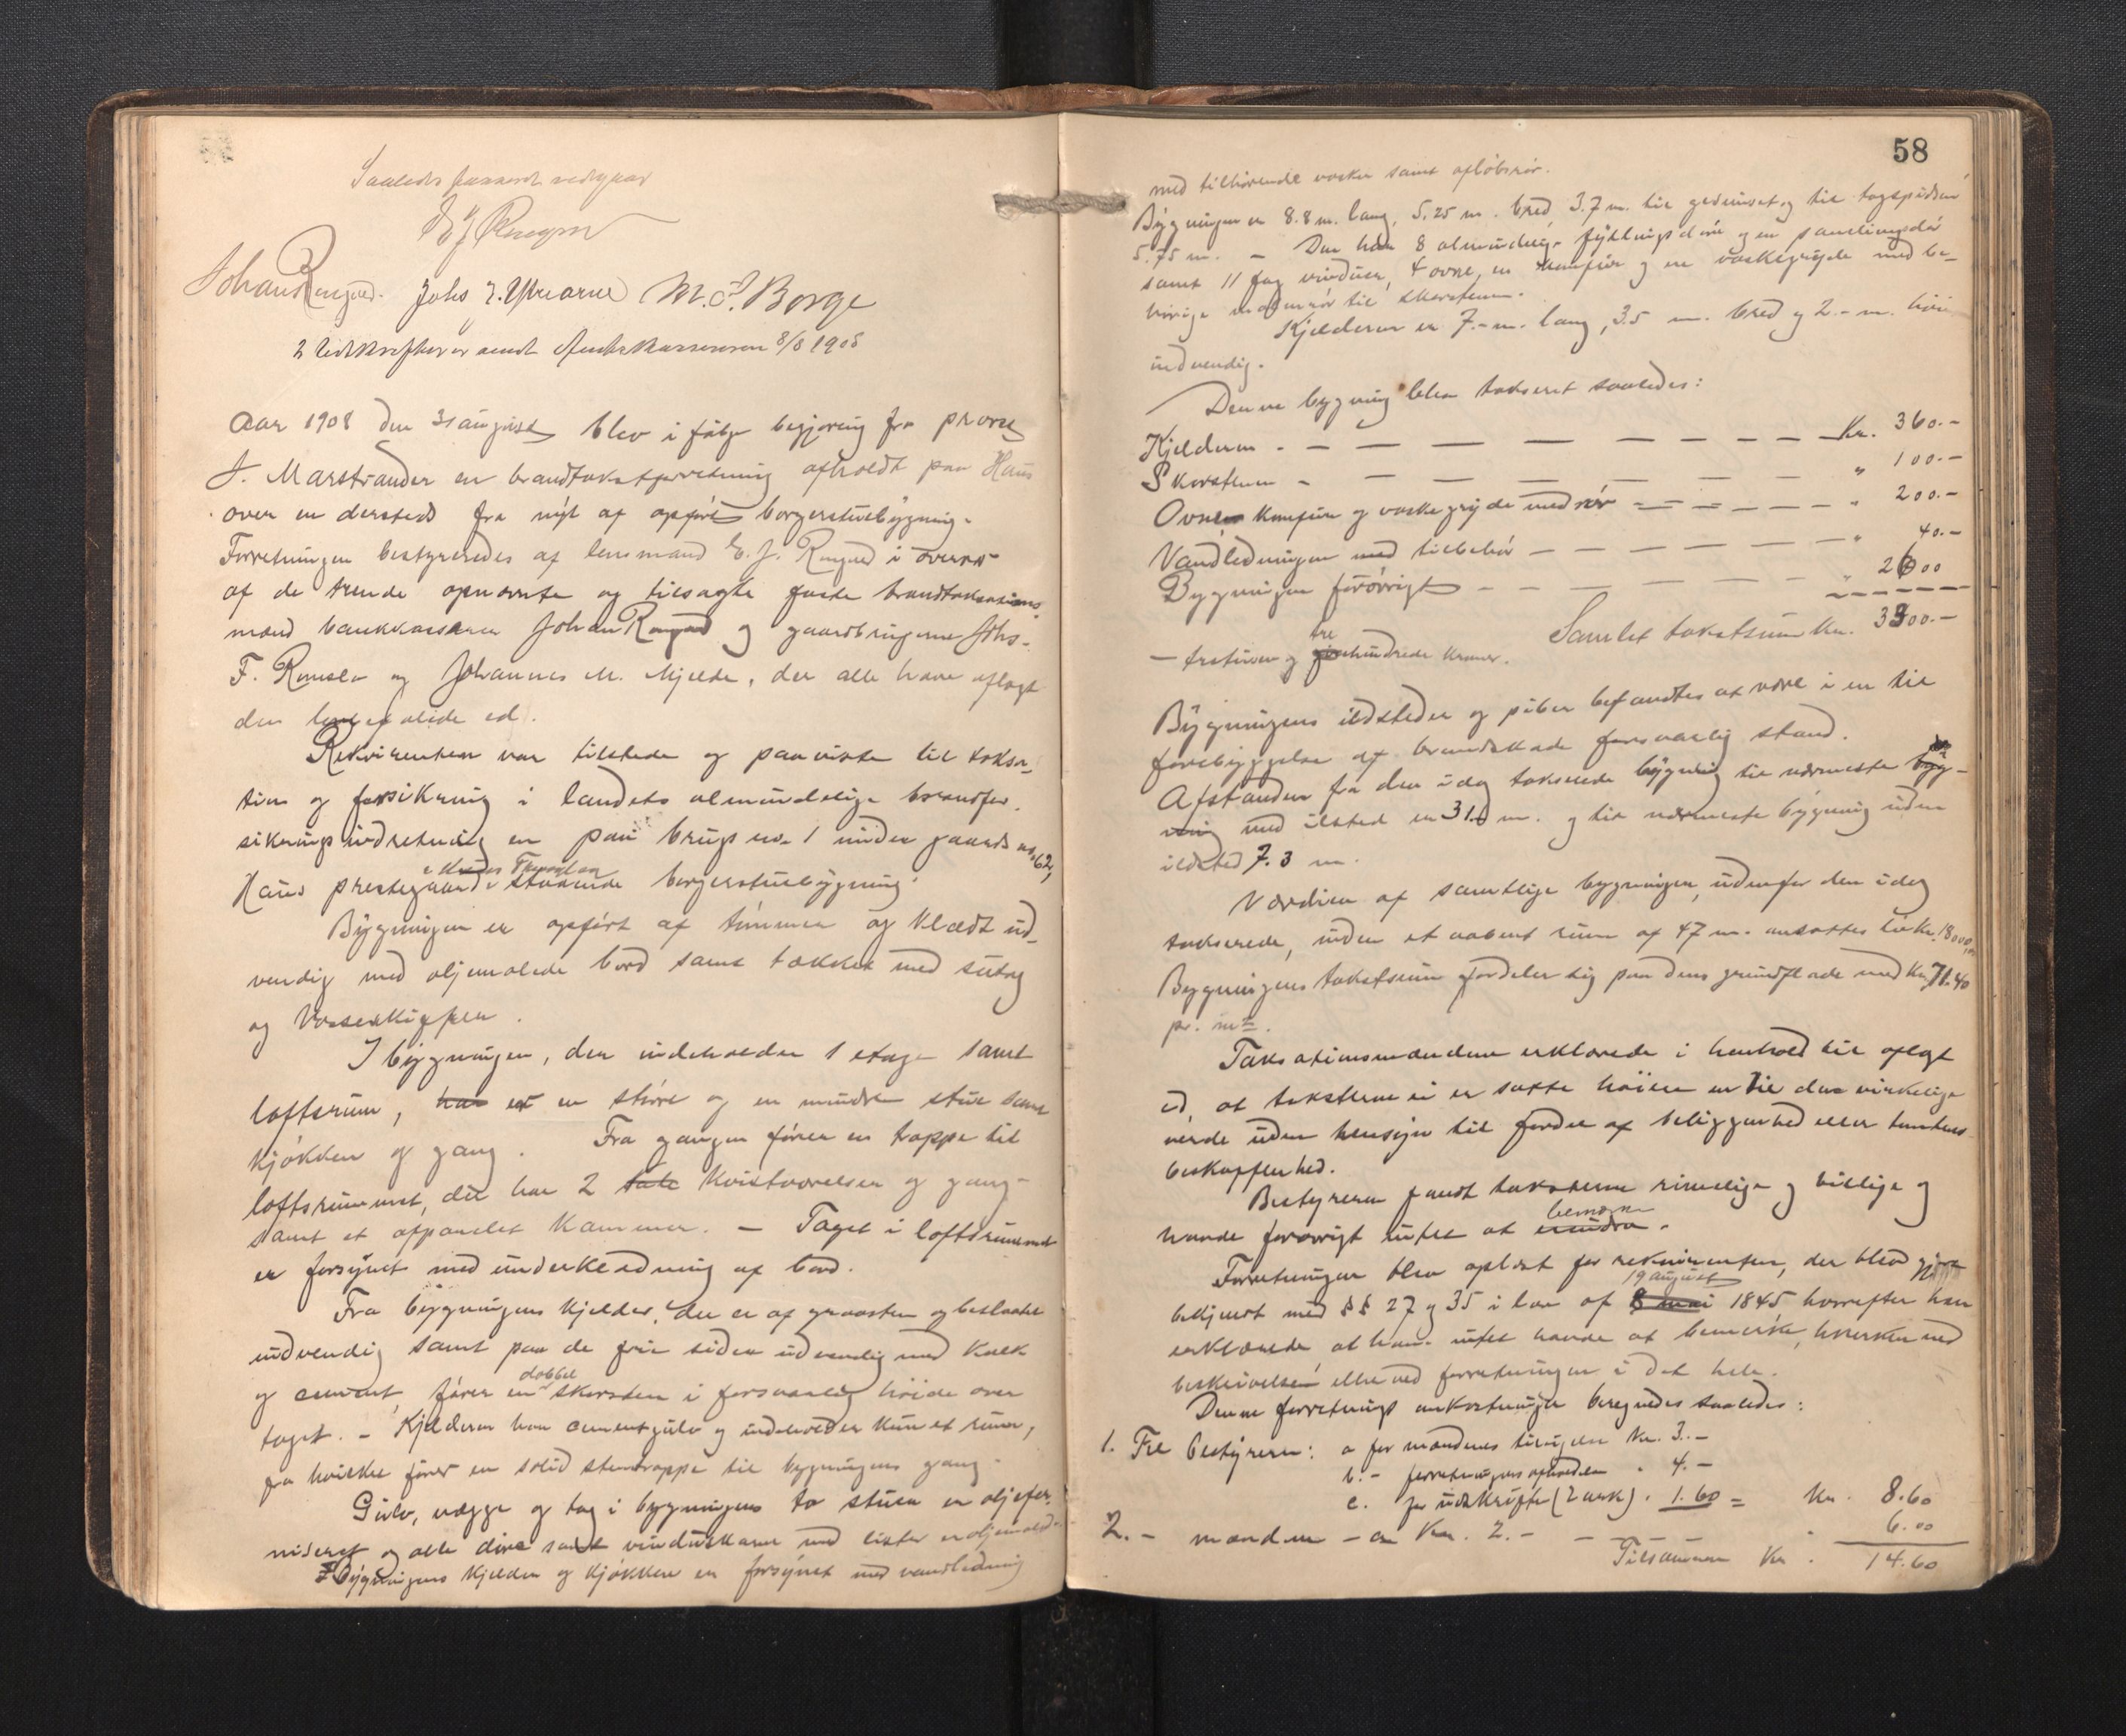 Saaledes passeret vedgaar
Johan Ringod. Johs J. Ytrearne M. J. Borge
2 udskrifter er sendt Amtskassereren 8/8 1908
Aar 1908 den 31 august blev i følge begjæring fra provst
J. Marstrander en brandtakstforretning afholdt paa Haus
over en dersteds fra nyt af opført borgerstuebygning.
Forretningen bestyredes af lensmand E. J. i overvær
af de trende opnævnte og tilsagte faste brandtaksations
mænd bankkasserer Johan og gaardbrugerne Johs.
F. Romslo og Johannes M. Mjelde, der alle have aflagt
den befalede ed.
Rekvirenten var tilstede og paaviste til taksa-
tion og forsikring i landets almindelige brandfor-
sikringsindretning en paa brugs no. 1 under gaards no. 62,
Haus prestegaard i staaende borgerstuebygning.
Bygningen er opført af tømmer og klædt ud-
vendig med oljemalede bord samt tækket med sutag
og Vosseskifer.
I bygningen, der indeholder 1 etage samt
loftsrum, har er en større og en mindre stue samt
kjøkken og gang. Fra gangen fører en trappe til
loftsrummet, der har 2 kvistværelser og gang
samt et afpanelet kammer. — Taget i loftsrummet
er forsynet med underklædning af bord.
Fra bygningens kjelder, der er af graasten og beslaaet
indvendig samt paa de frie sider udvendig med kalk
dobbel
og cement, fører en skorsten i forsvarlig høide over
taget. – Kjelderen har cementgulv og indeholder kun et rum,
fra hvilket fører en solid stentrappe til bygningens gang.
Gulv, vægge og tag i bygningens to stuer er oljefer-
niseret og alle døre samt vinduskarme med lister er oljemalede.
Bygningens kjelder og kjøkken er forsynet med vandledning
58
med tilhørende vasker samt afløbsrør.
Bygningen er 8.8 m. lang, 5.25 m. bred, 3.7 m. til gesimset og til tagspidsen
5.75 m. — Den har 8 almindelige fyldningsdøre og en panelingsdør
samt 11 fag vinduer, 4 ovne, en komfur og en vaskegryde med be-
hørige rør til skorstenen.
Kjelderen er 7.- m. lang, 3.5 m. bred og 2.- m. høi
indvendig.
Denne bygning blev takseret saaledes:
Kjelderen - — — — — — — — Kr. 360.-
Skorstenen - — — — — — — " 100.-
Ovne komfur og vaskegryde med rør — — — — — " 200.-
Vandledningen med tilbehør — — — — — — " 40.-
Bygningen forøvrigt — — — — — — " 2600
Samlet takstsum Kr. 3300.-
tre
— tretusen og hundrede kroner.
Bygningens ildsteder og piber befandtes at være i en til
forebyggelse af brandskade forsvarlig stand.
Afstanden fra den idag takserede bygning til nærmeste byg-
ning med ildsted er 31.0 m. og til nærmeste bygning uden
ildsted 7.3 m.
Værdien af samtlige bygninger, udenfor den idag
takserede, inden et aabent rum af 47 m. ansattes til kr. 18000.
Bygningens takstsum fordeler sig paa dens grundflade med Kr. 71.40
pr. m².
Taksationsmændene erklærede i henhold til aflagt
ed, at taksterne ei er satte høiere en til den virkelige
værde uden hensyn til fordel af beliggenhed eller tomtens
beskaffenhed.
Bestyreren fandt taksterne rimelige og billige og
bemærke
havde forøvrigt intet at erindre.
Forretningen blev oplæst for rekvirenten, der blev gjort
19 august
bekjendt med §§ 27 og 35 i lov af 8 mai 1845 hvorefter han
erklærede at han intet havde at bemerke, hverken ved
beskrivelsen eller ved forretningen i det hele.
Denne forretnings omkostninger beregnedes saaledes:
1. Til bestyreren: a for mændenes tilsigelse Kr. 3.-
b. - forretningens afholdelse " 4.-
c. for udskrifter (2 ark) " 1.60 = Kr. 8.60
2. - mændene - a Kr. 2. - — " 6.00
Tilsammen Kr. 14.60